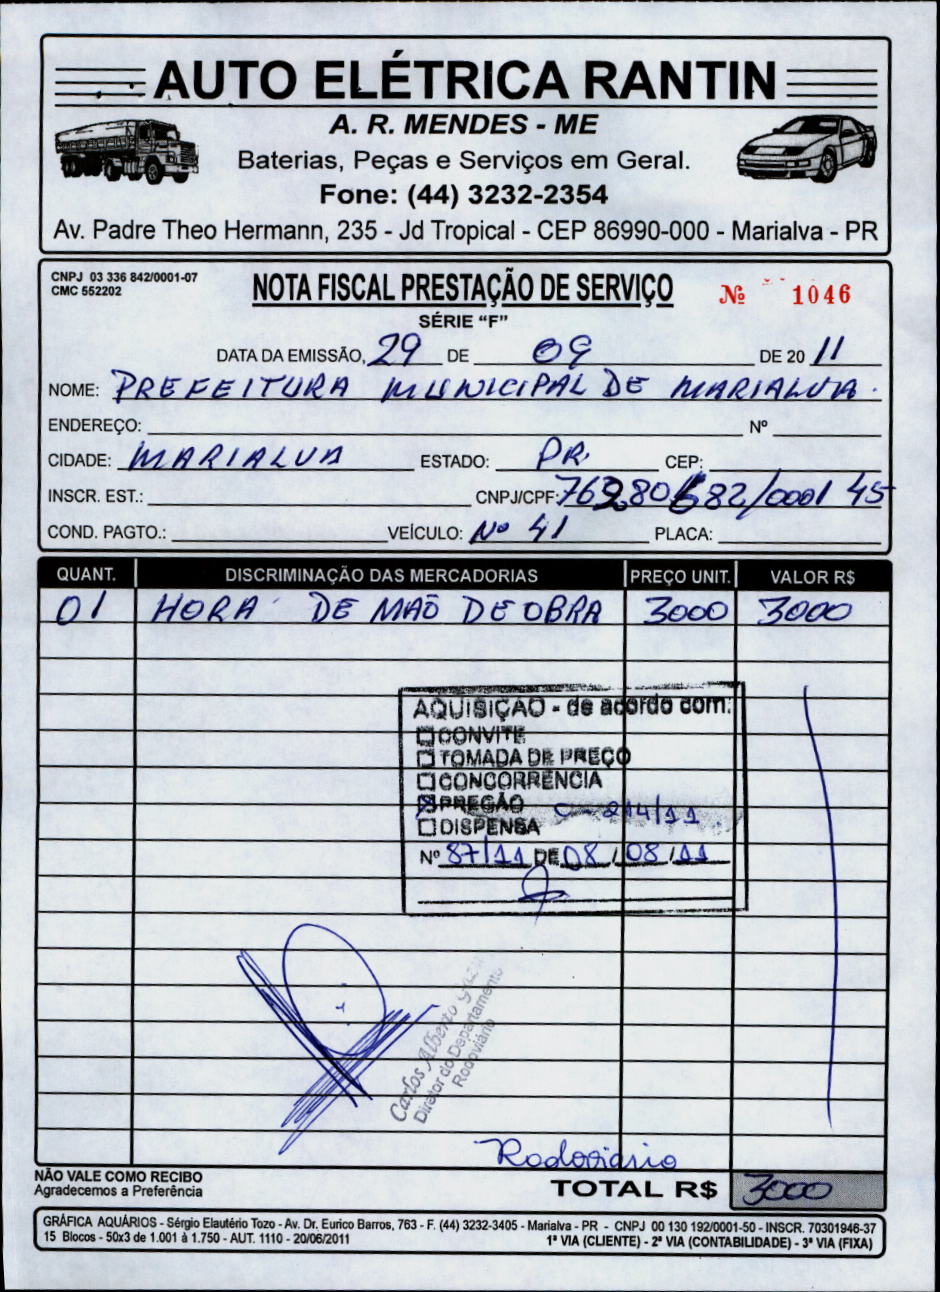 AUTO ELÉTRICA RANTIN
A. R. MENDES - ME
Baterias, Peças e Serviços em Geral.
Fone: (44) 3232-2354
Av. Padre Theo Hermann, 235 - Jd Tropical - CEP 86990-000 - Marialva - PR
CNPJ 03 336 842/0001-07
CMC 552202
NOTA FISCAL PRESTAÇÃO DE SERVIÇO
Nº 1046
SÉRIE "F"
DATA DA EMISSÃO, 29 DE 09 DE 20 11
NOME: PREFEITURA MUNICIPAL DE MARIALVA.
ENDEREÇO: Nº
CIDADE: MARIALVA ESTADO: PR. CEP:
INSCR. EST.: CNPJ/CPF: 76280682/0001 45
COND. PAGTO.: VEÍCULO: Nº 41 PLACA:
QUANT. DISCRIMINAÇÃO DAS MERCADORIAS PREÇO UNIT. VALOR R$
01 HORA DE MAO DE OBRA 3000 3000
AQUISIÇÃO - de acordo com:
CONVITE
TOMADA DE PREÇO
CONCORRÊNCIA
PREGÃO 214/11
DISPENSA
Nº 87/11 DE 08/08/11
Carlos Alberto
Diretor do Departamento
Rodoviário
Rodoviário
NÃO VALE COMO RECIBO
Agradecemos a Preferência
TOTAL R$ 3000
GRÁFICA AQUÁRIOS - Sérgio Elautério Tozo - Av. Dr. Eurico Barros, 763 - F. (44) 3232-3405 - Marialva - PR - CNPJ 00 130 192/0001-50 - INSCR. 70301946-37
15 Blocos - 50x3 de 1.001 à 1.750 - AUT. 1110 - 20/06/2011 1ª VIA (CLIENTE) - 2ª VIA (CONTABILIDADE) - 3ª VIA (FIXA)